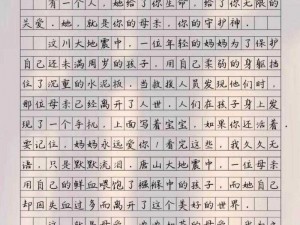 有一个人，她给了你生命，给了你无限的
关爱，她，就是你的母亲，你的守护神。
这川大地震中，一位年轻的妈妈为了保护
自己还未满周岁的孩子，用自己柔弱的身躯挡
住了沉重的水泥板，当救援人员发现他们时，
那位母亲已经离开了人世，人们在孩子身上发
现了一个手机，上面写着宝宝，如果你还活着
要记住，妈妈永远爱你！看到这，我久久无
语，只是默默流泪。唐山大地震中，一位母亲
用自己的鲜血喂饱了襁褓中的孩子，而她自己
却因失血过多而离开了这个美好的世界。